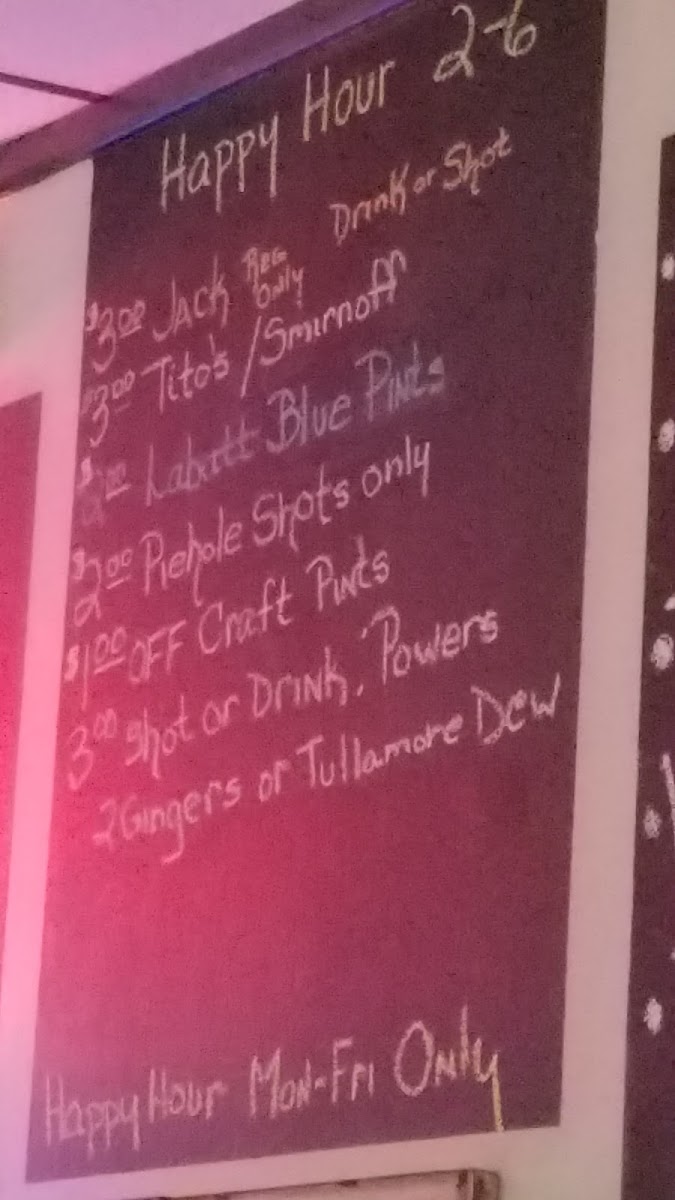 Happy Hour 2-6
Drink or Shot
$3.00 Jack Reg Only
3.00 Tito's / Smirnoff
$2.00 Labatt Blue Pints
$2.00 Piehole Shots only
$1.00 OFF Craft Pints
3.00 Shot or Drink, Powers
2Gingers or Tullamore Dew
Happy Hour Mon-Fri Only